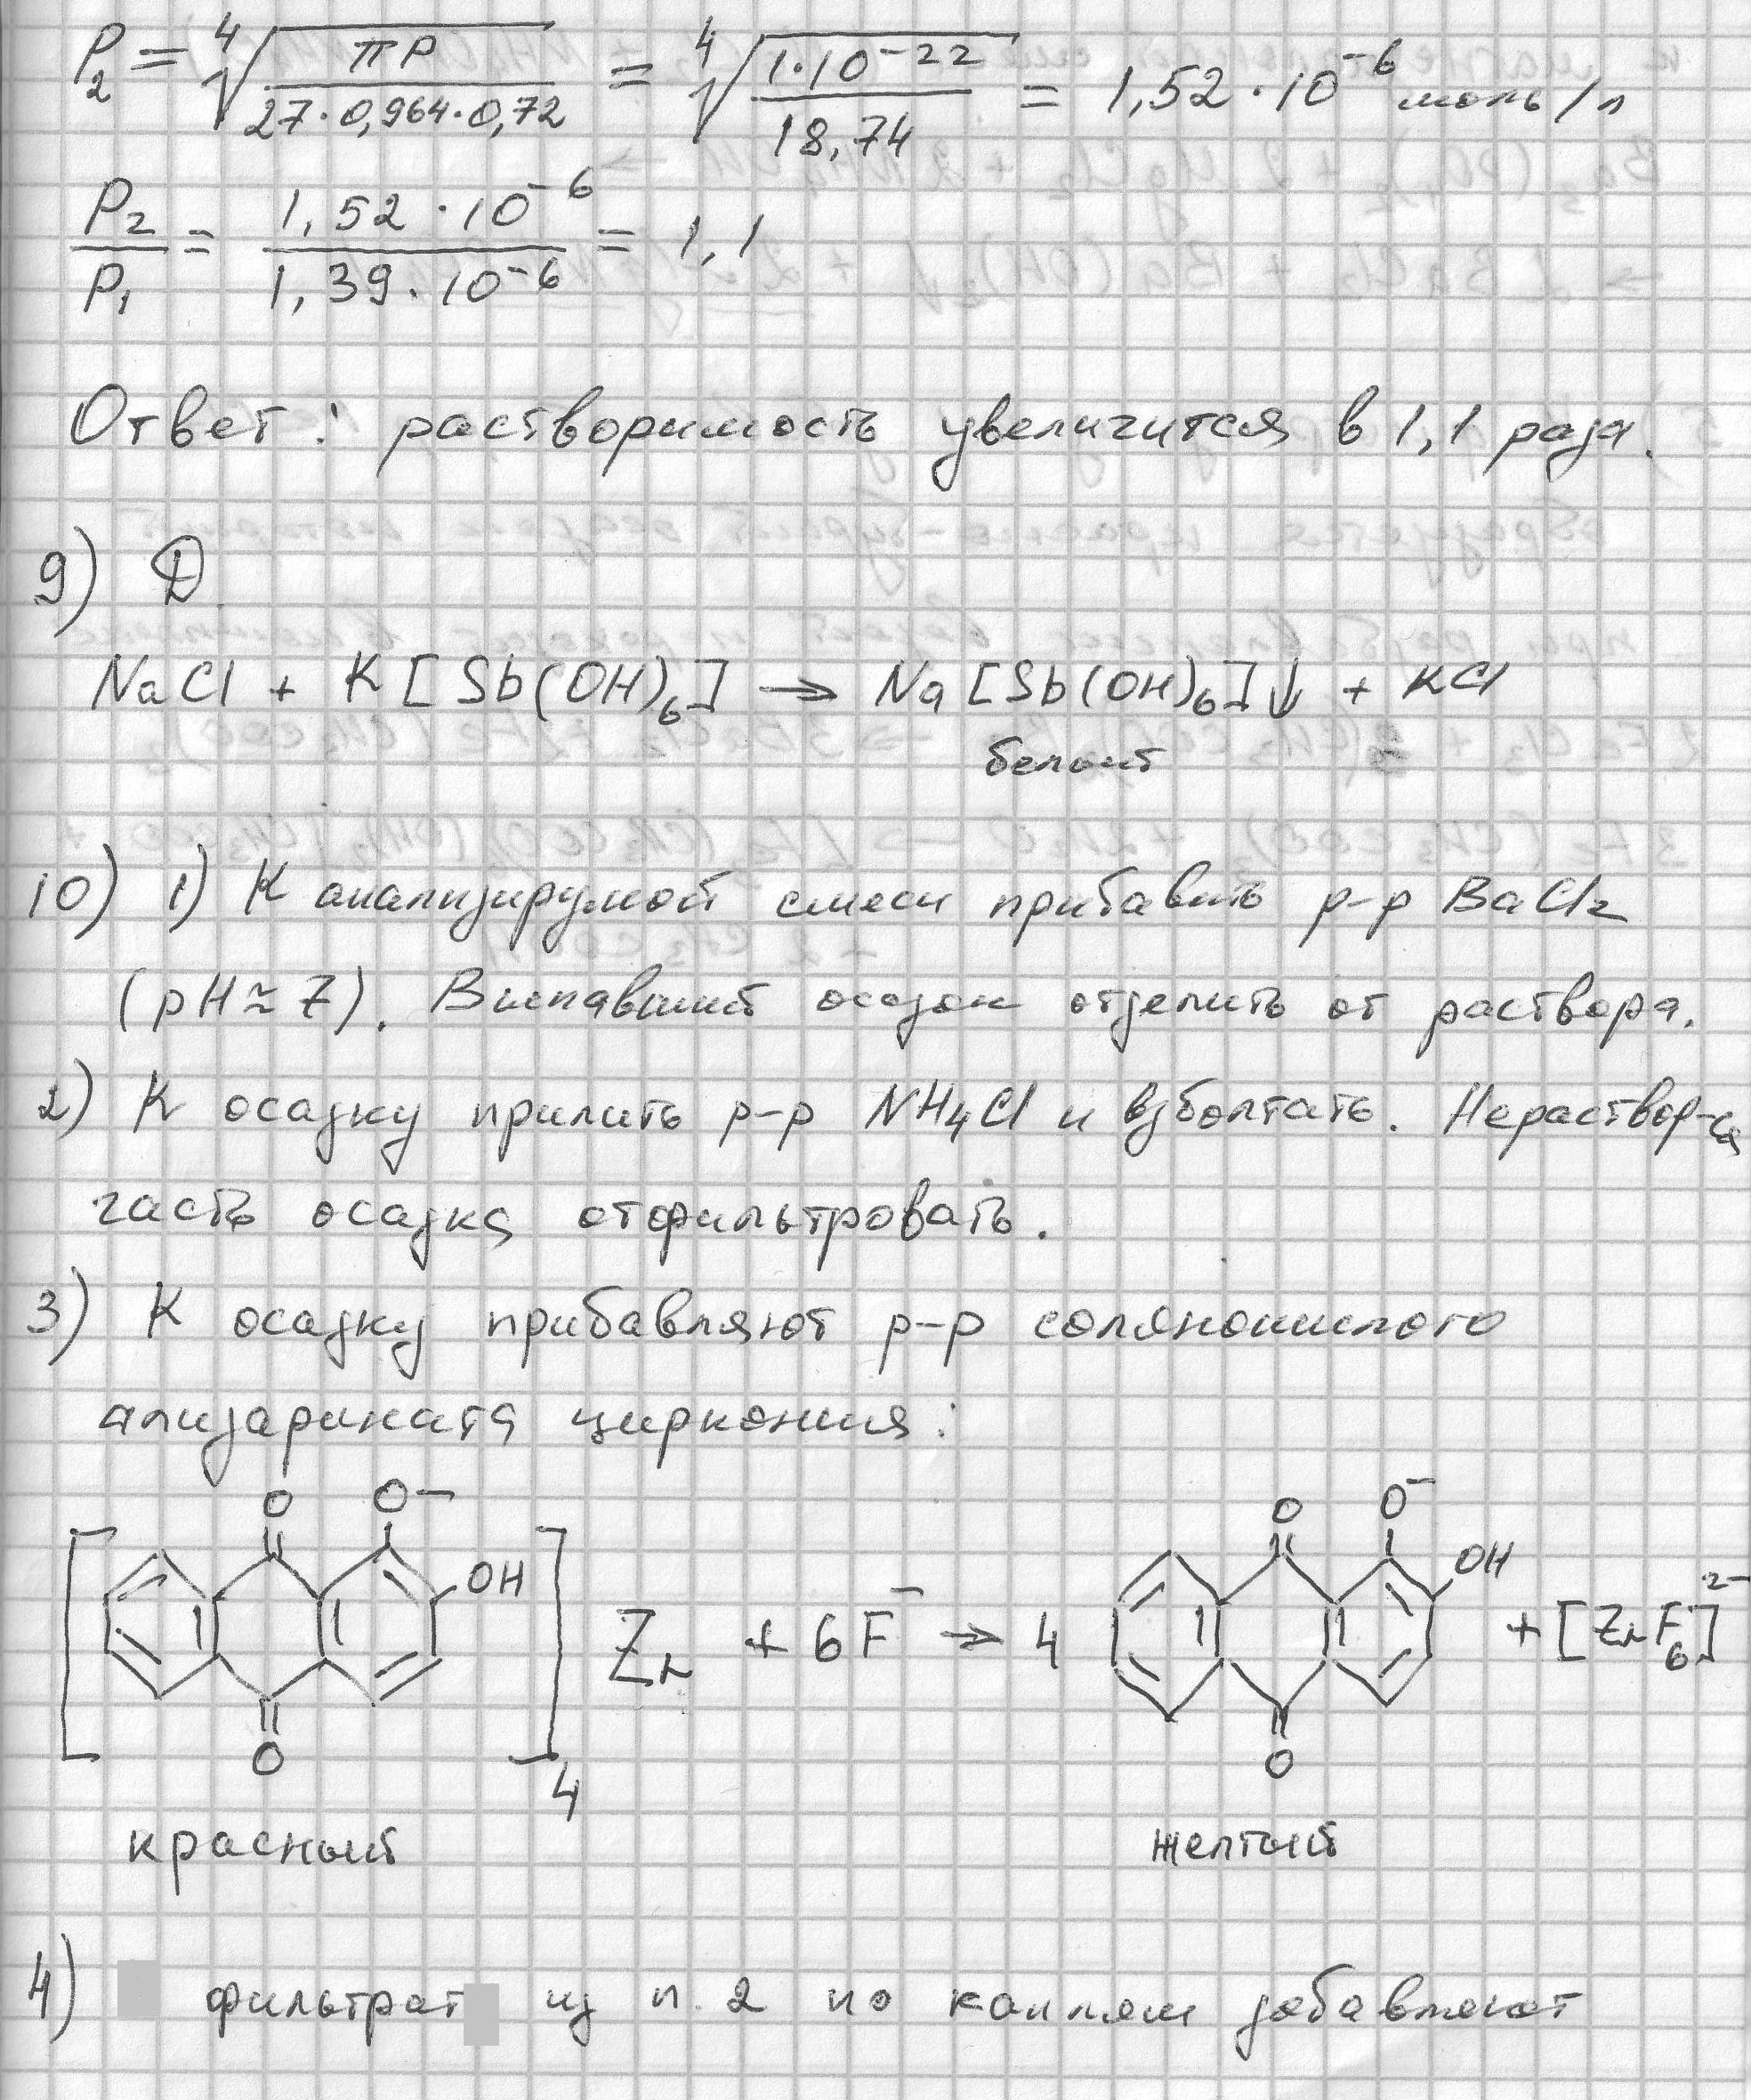 P₂ = ⁴√(ПР / 27·0,964·0,72) = ⁴√(1·10⁻²² / 18,74) = 1,52·10⁻⁶ моль/л
P₂/P₁ = 1,52·10⁻⁶ / 1,39·10⁻⁶ = 1,1
Ответ: растворимость увеличится в 1,1 раза.
9) Д
NaCl + K[Sb(OH)₆] → Na[Sb(OH)₆]↓ + KCl
белый
10) 1) К анализируемой смеси прибавить р-р BaCl₂
(pH ≈ 7). Выпавший осадок отделить от раствора.
2) К осадку прилить р-р NH₄Cl и взболтать. Нераствор-ся
часть осадка отфильтровать.
3) К осадку прибавляют р-р солянокислого
ализарината циркония:
O O⁻ O O⁻
OH OH
[ ]₄ Zr + 6F⁻ → 4 + [ZrF₆]²⁻
O O
красный желтый
4) фильтрат из п. 2 по каплям добавляют